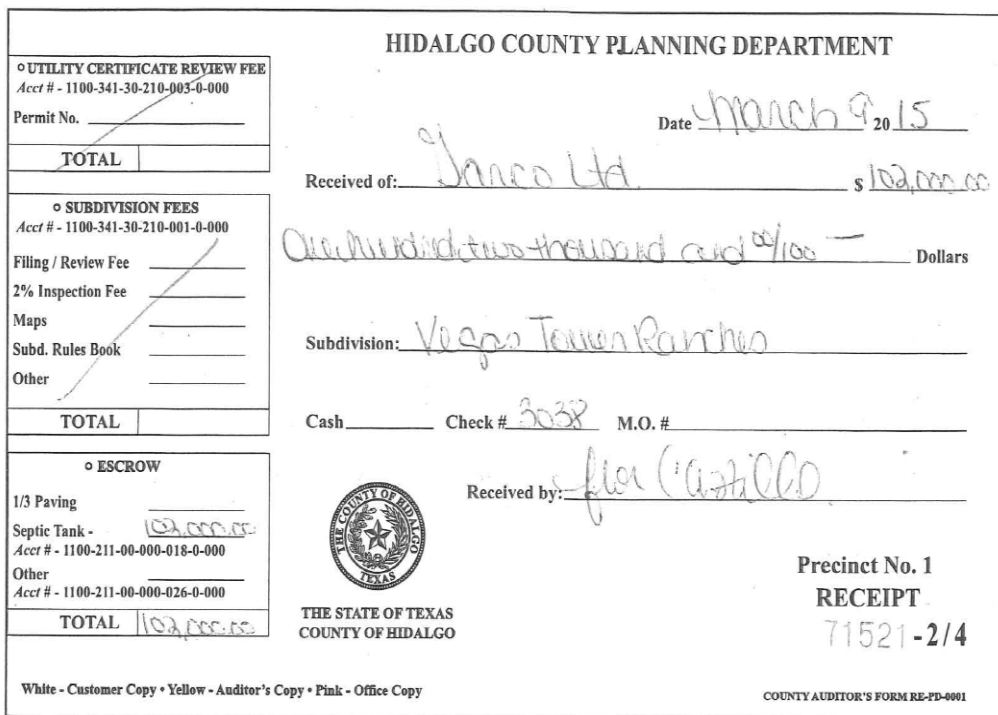 HIDALGO COUNTY PLANNING DEPARTMENT
○ UTILITY CERTIFICATE REVIEW FEE
Acct # - 1100-341-30-210-003-0-000
Permit No.
TOTAL
○ SUBDIVISION FEES
Acct # - 1100-341-30-210-001-0-000
Filing / Review Fee
2% Inspection Fee
Maps
Subd. Rules Book
Other
TOTAL
○ ESCROW
1/3 Paving
Septic Tank - 102,000.00
Acct # - 1100-211-00-000-018-0-000
Other
Acct # - 1100-211-00-000-026-0-000
TOTAL 102,000.00
Date March 9 20 15
Received of: Ltd. $ 102,000.00
One hundred two thousand and 00/100 — Dollars
Subdivision: Vegas Ranches
Cash Check # 3038 M.O. #
Received by: Flor Castillo
THE COUNTY OF HIDALGO
TEXAS
THE STATE OF TEXAS
COUNTY OF HIDALGO
Precinct No. 1
RECEIPT
71521 -2/4
White - Customer Copy • Yellow - Auditor's Copy • Pink - Office Copy
COUNTY AUDITOR'S FORM RE-PD-0001